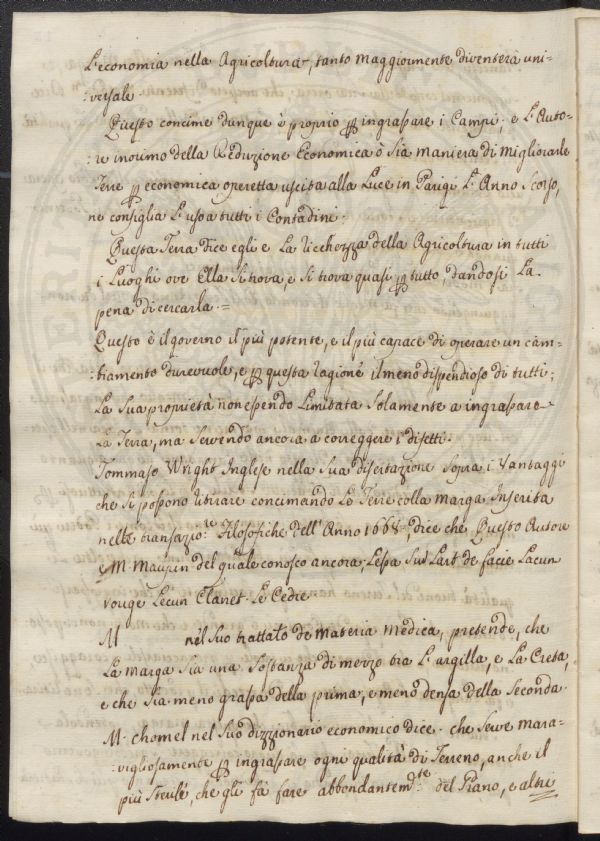 L'economia nella Agricoltura, tanto maggiormente diventerà uni=
:versale
Questo concime dunque è proprio p ingrassare i Campi; e L'Auto=
:re inoimo della Reduzione Economica ò sia maniera di migliorarle
Terre p economica operetta uscita alla Luce in Parigi L'Anno Scorso,
ne consiglia L'uso a tutti i Contadini.
Questa Terra dice egli e La ricchezza della Agricoltura in tutti
i Luoghi ove Ella si trova, e si trova quasi p tutto, dandosi La
pena di cercarla.=
Questo è il governo il più potente, e il più capace di operare un cam=
:biamento durevole, e p questa ragione il meno dispendioso di tutti;
La Sua proprietà non essendo Limitata Solamente a ingrassare
La Terra, ma servendo ancora a correggere i difetti.
Tommaso Wright Inglese nella Sua disertazione Sopra i Vantaggi
che si possono ritirare concimando Le Terre colla marga Inserita
nelle transazio:ni Filosofiche dell'Anno 1668, dice che Questo Autore
e M. Maupin del quale conosco ancora, L'essa Sur L'art de facie Lacun
rouge Lecun Clairet Le Cedre
M nel suo trattato de Materia Medica, pretende, che
La marga Sia una Sostanza di mezzo tra L'argilla, e La Creta,
e che Sia meno grassa della prima, e meno densa della Seconda.
M. Chomel nel Suo dizzionario economico dice. che Serve mara=
:vigliosamente p ingrassare ogni qualità di Terreno, anche il
più Sterile, che gli fà fare abbondantem:te del Grano, e altri